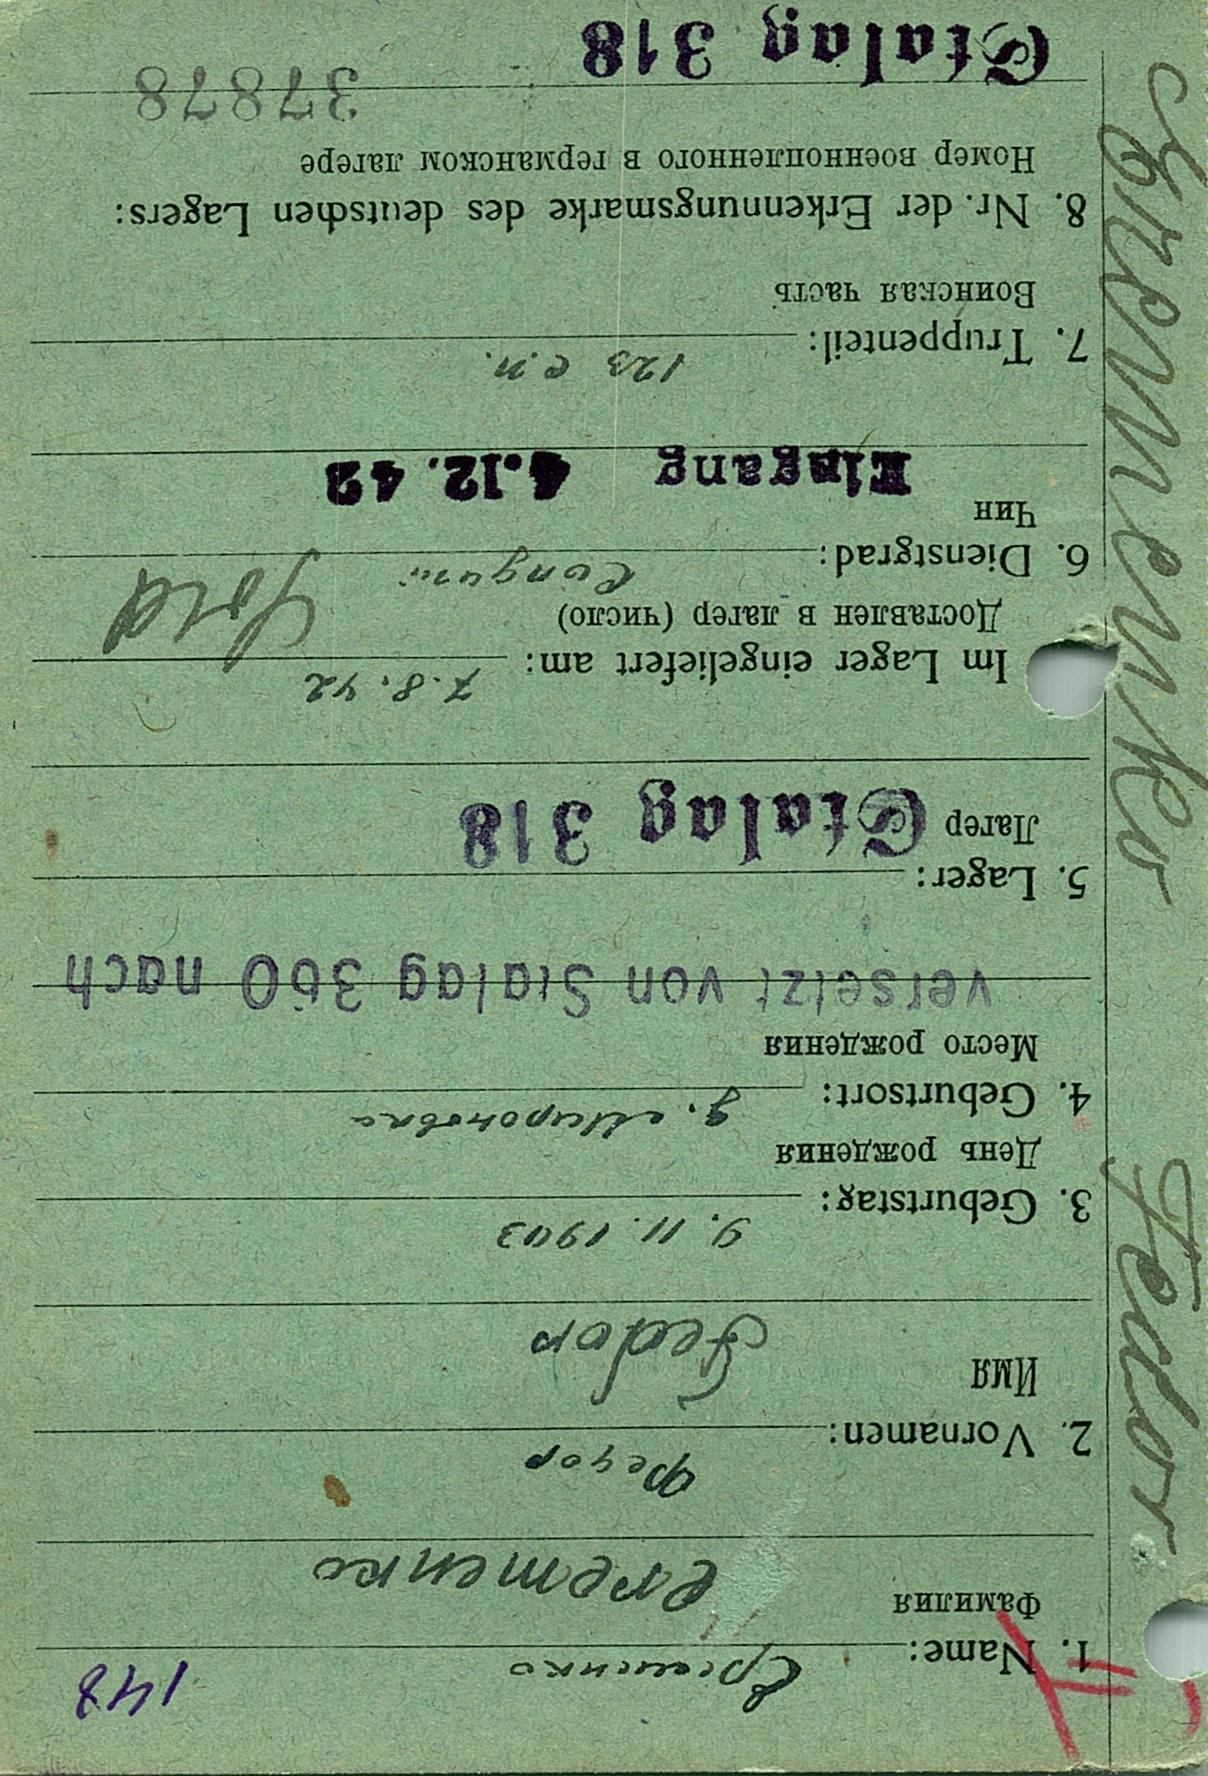 148
1. Name: Еременко
Фамилия
Eremenko
2. Vornamen: Федор
Имя
Fedor
3. Geburtstag: 9. 11. 1903
День рождения
4. Geburtsort: д. Мироновка
Место рождения
versetzt von Stalag 360 nach
5. Lager:
Лагер Stalag 318
Im Lager eingeliefert am: 7. 8. 42
Доставлен в лагер (число)
6. Dienstgrad: Солдат Sold
Чин
Eingang 4.12.42
7. Truppenteil: 123 с.п.
Воинская часть
8. Nr. der Erkennungsmarke des deutschen Lagers:
Номер военнопленного в германском лагере
37878
Stalag 318
Eremenko Fedor